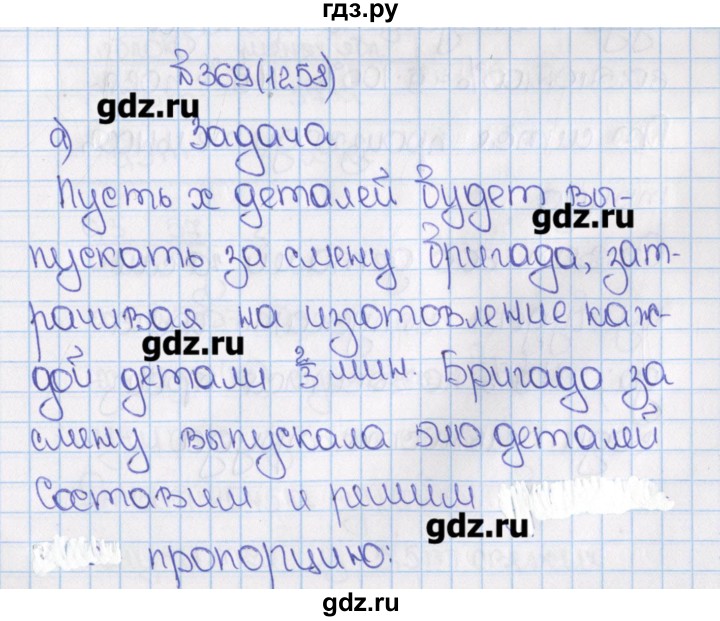 гдз.ру
№369(1258)
gdz.ru
а) Задача
Пусть х деталей будет вы-
gdz.ru
пускать за смену бригада, зат-
рачивая на изготовление каж-
gdz.ru
дой детали 2/3 мин. Бригада за
смену выпускала 540 деталей
Составим и решим
gdz.ru
пропорцию:
gdz.ru